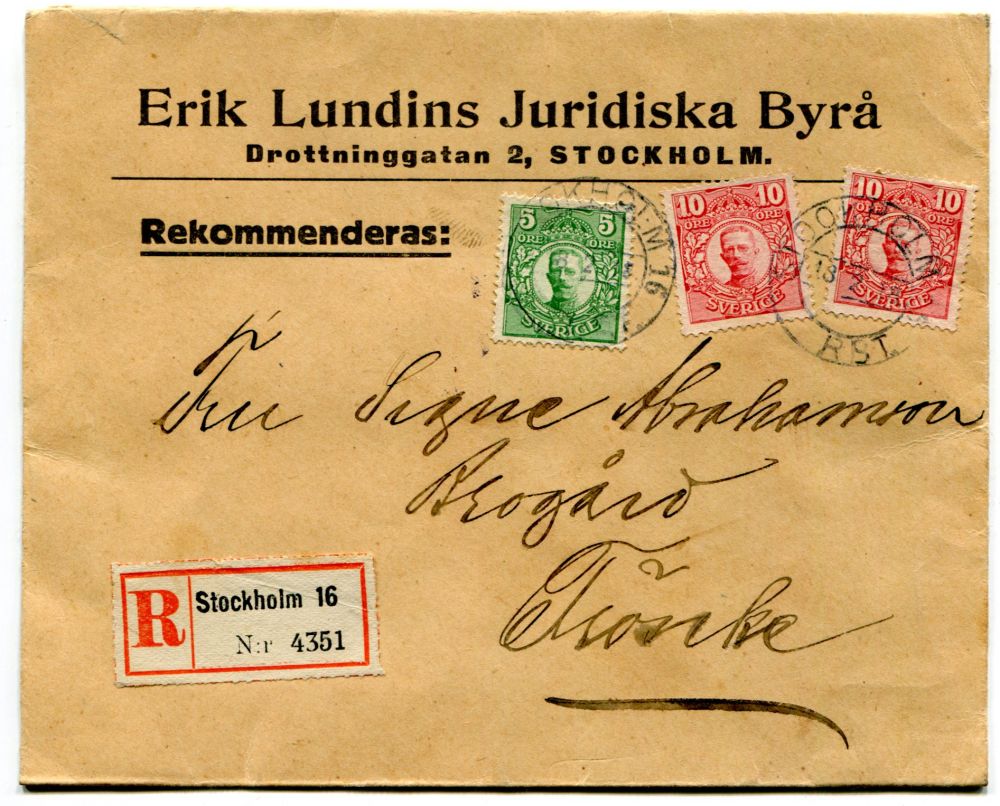 Erik Lundins Juridiska Byrå
Drottninggatan 2, STOCKHOLM.
Rekommenderas:
5 5
ÖRE ÖRE
SVERIGE
10 10
ÖRE ÖRE
SVERIGE
10 10
ÖRE ÖRE
SVERIGE
STOCKHOLM 16
STOCKHOLM
RST.
Fru Signe Abrahamson
Brogård
R
Stockholm 16
N:r 4351